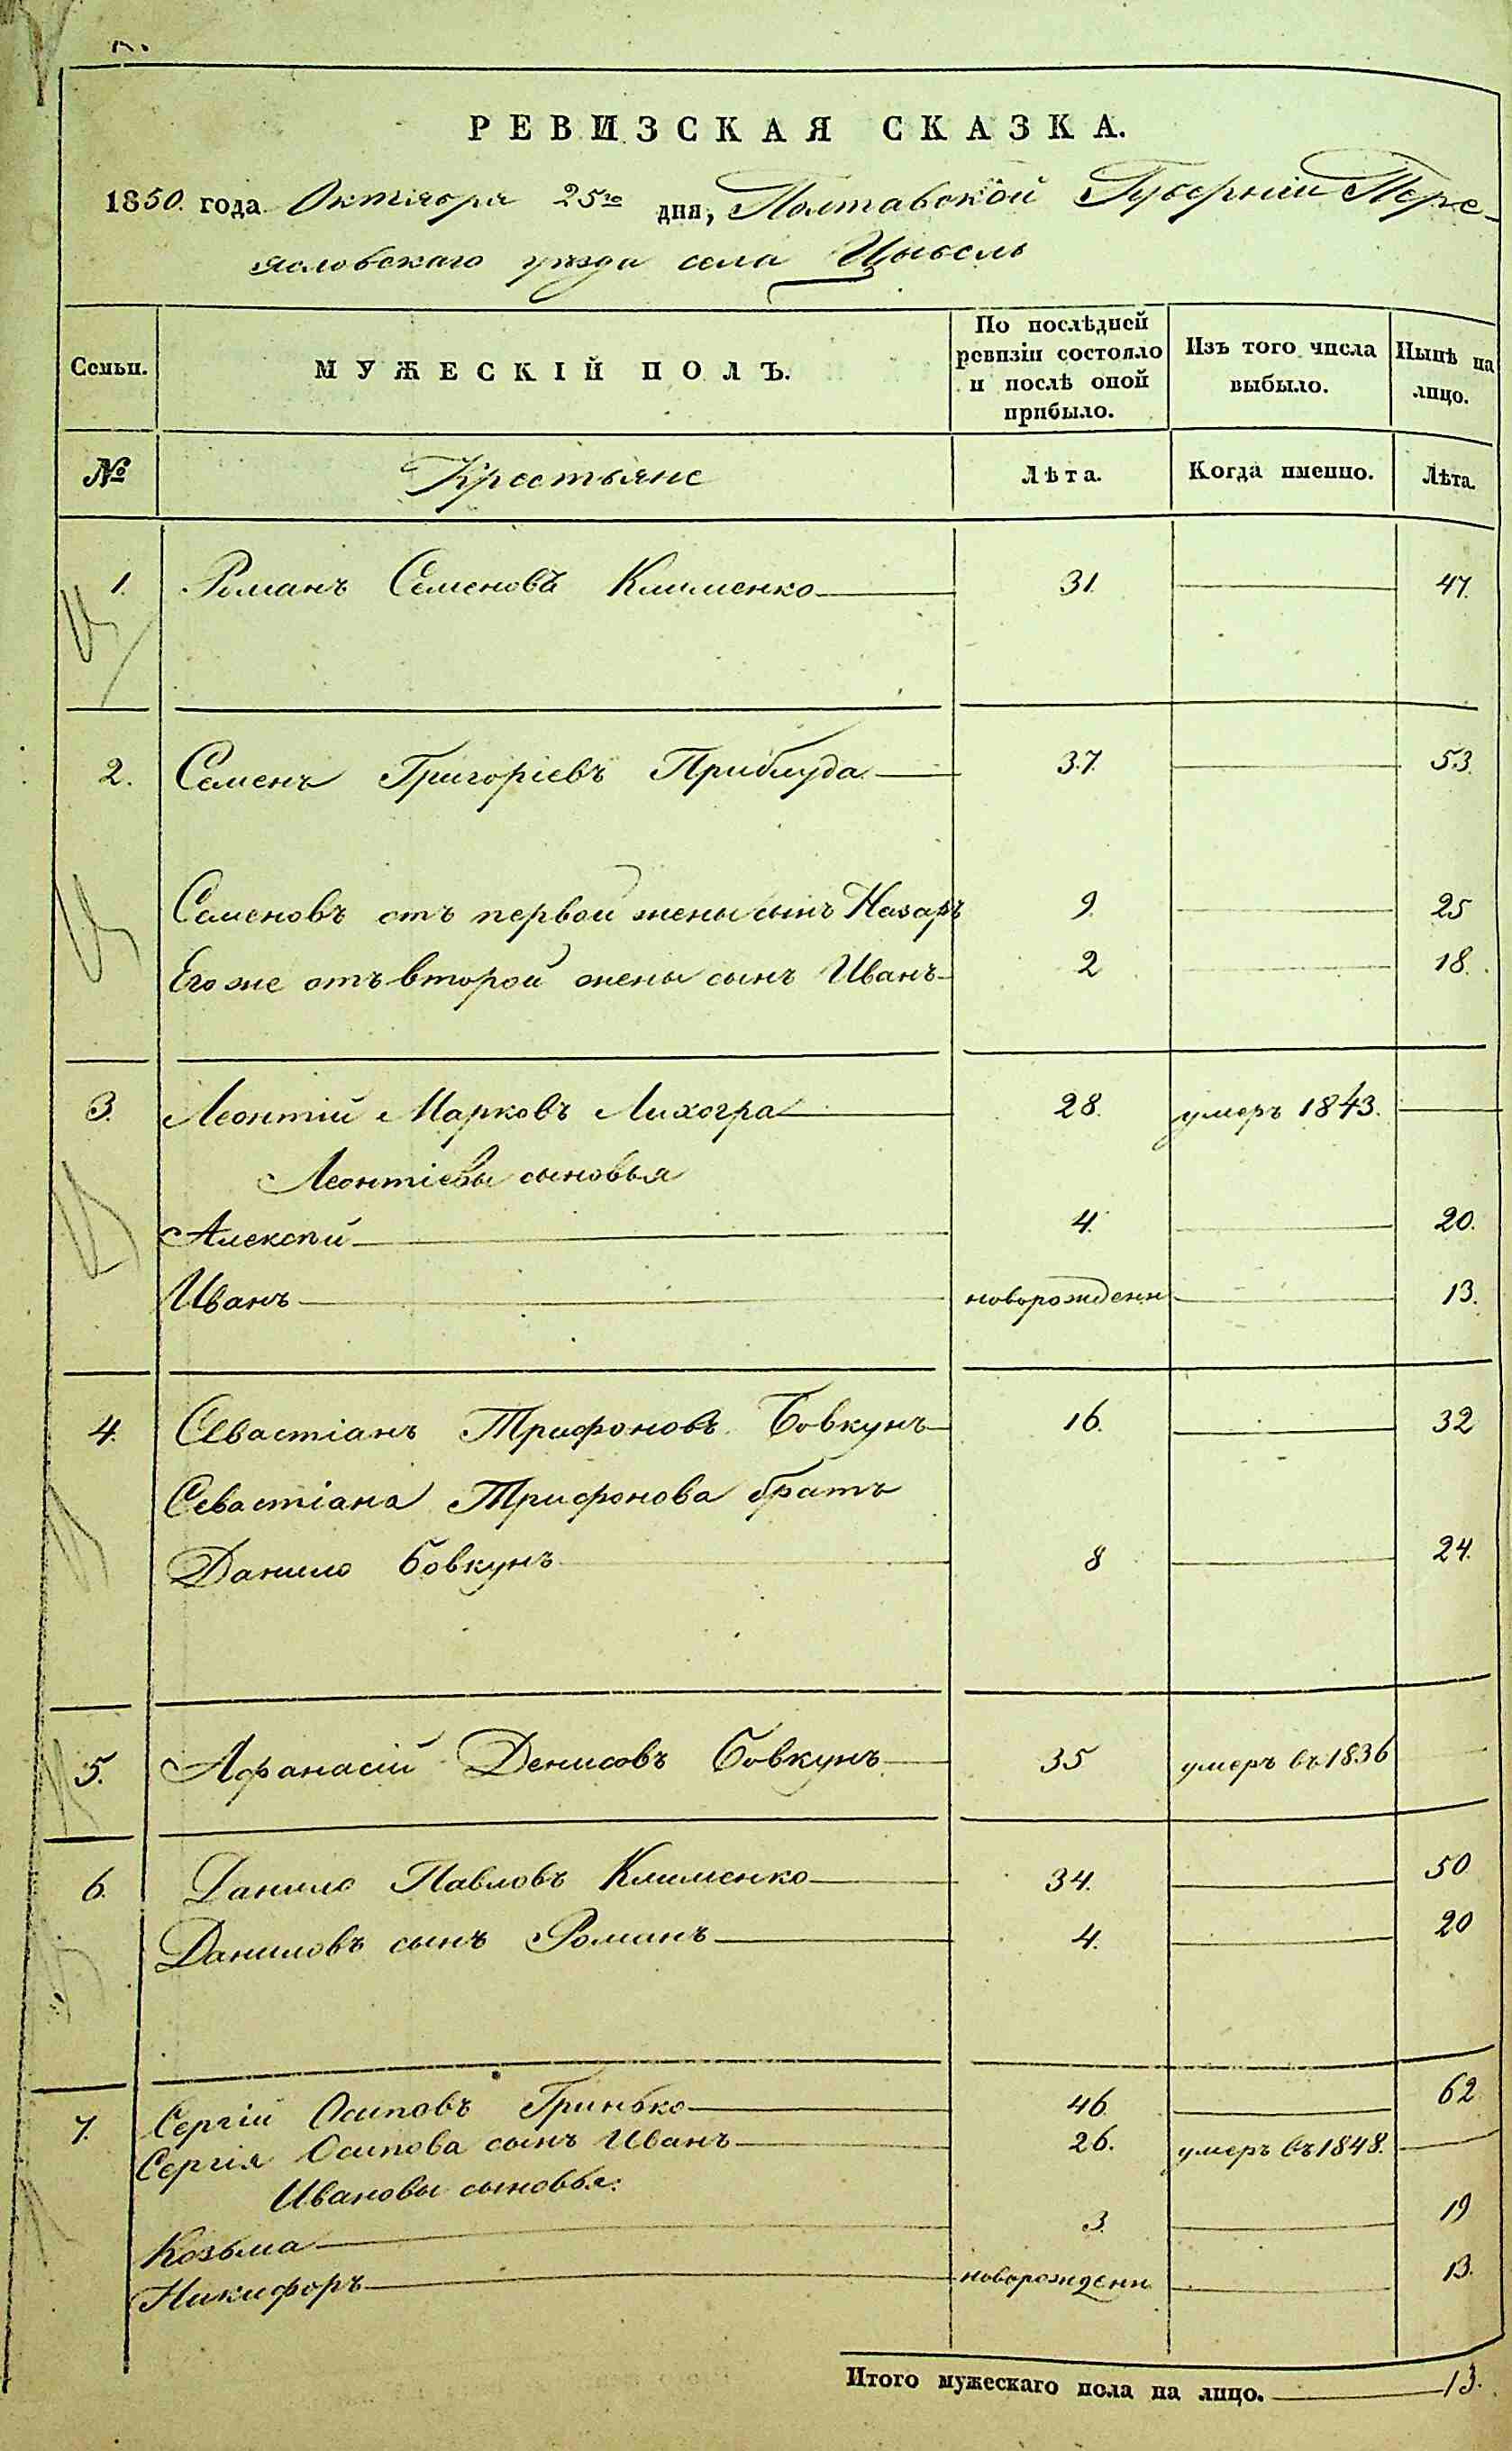 РЕВИЗСКАЯ СКАЗКА.
1850. года Октября 25го дня, Полтавской Губерніи Пере-
яславскаго уѣзда села Цыбель
Семьи.
МУЖЕСКІЙ ПОЛЪ.
По послѣдней
ревизіи состояло
и послѣ оной
прибыло.
Изъ того числа
выбыло.
Нынѣ на
лицо.
№
Крестьяне
Лѣта.
Когда именно.
Лѣта.
1. Романъ Семеновъ Клименко 31. 47.
2. Семенъ Григоріевъ Приблуда 37. 53.
Семеновъ отъ первой жены сынъ Назаръ 9. 25
Его же отъ второй жены сынъ Иванъ 2 18.
3. Леонтій Марковъ Лихогра 28. умеръ 1843.
Леонтіевы сыновья
Алексѣй 4. 20.
Иванъ новорожденн 13.
4. Севастіанъ Трифоновъ Бовкунъ 16. 32
Севастіана Трифонова братъ
Данило Бовкунъ 8 24.
5. Афанасій Денисовъ Бовкунъ 35 умеръ въ 1836
6. Данило Павловъ Клименко 34. 50
Даниловъ сынъ Романъ 4. 20
7. Сергій Осиповъ Гринько 46. 62
Сергія Осипова сынъ Иванъ 26. умеръ въ 1848.
Ивановы сыновья:
Козьма 3. 19
Никифоръ новорожденн 13.
Итого мужескаго пола на лицо. 13.